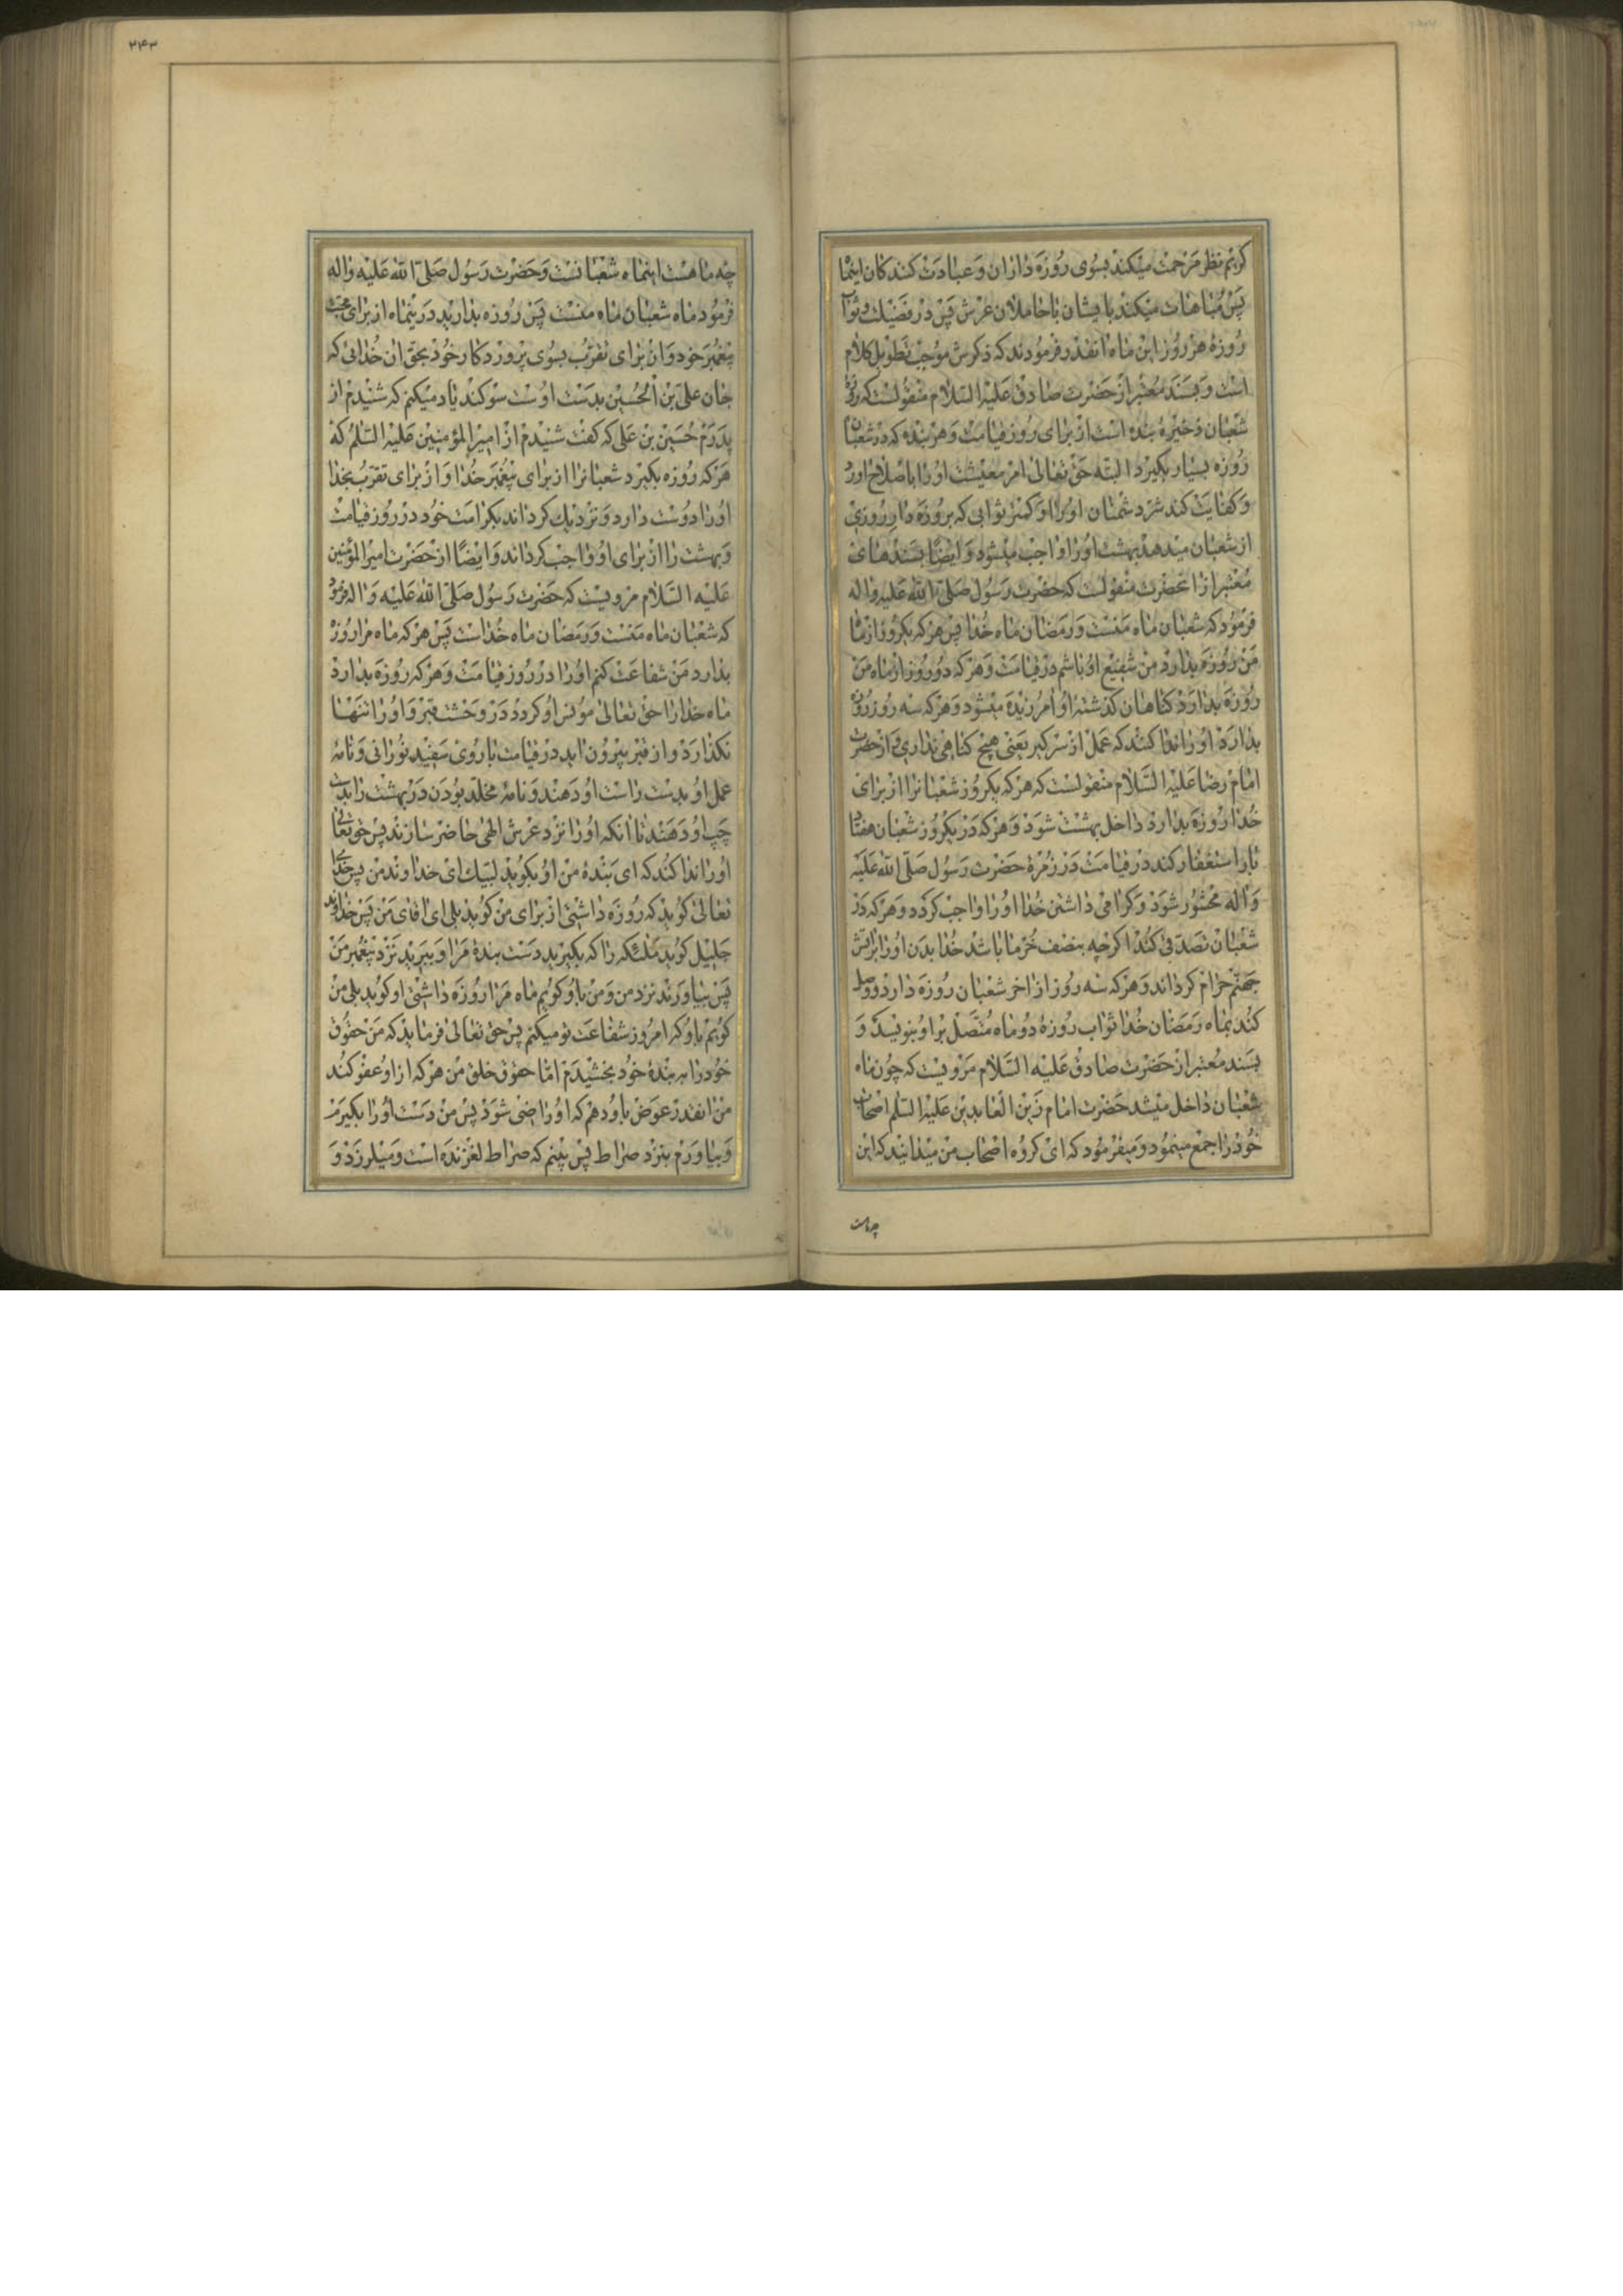 کریم نظر مرحمت میکند بسوی روزه داران و عبادت کنندکان اینماه
پس مباهات میکند بایشان با حاملان عرش پس در فضیلت و ثواب
روزه هر روز این ماه انقدر فرمودند که ذکرش موجب تطویل کلام
است و بسند معتبر از حضرت صادق علیه السلام منقولست که روزه
شعبان ذخیره بنده است از برای روز قیامت و هر بنده که در شعبان
روزه بسیار بکیرد البته حق تعالی امر معیشت اورا باصلاح اورد
و کفایت کند شر دشمنان اورا و کمتر ثوابی که بروزه دار روزی
از شعبان میدهد بهشت اورا واجب میشود و ایضا بسندهای
معتبر از انحضرت منقولست که حضرت رسول صلی الله علیه و اله
فرمود که شعبان ماه منست و رمضان ماه خدا پس هر که یکروز از ماه
من روزه بدارد من شفیع او باشم در قیامت و هر که دو روز از ماه من
روزه بدارد کناهان کذشته او امرزیده میشود و هر که سه روز روزه
بدارد اورا ندا کنند که عمل از سر کیر یعنی هیچ کناهی نداری و از حضرت
امام رضا علیه السلام منقولست که هر که یکروز شعبانرا از برای
خدا روزه بدارد داخل بهشت شود و هر که در یکروز شعبان هفتاد
بار استغفار کند در قیامت در زمره حضرت رسول صلی الله علیه
و اله محشور شود و کرامی داشتن خدا اورا واجب کردد و هر که در
شعبان تصدق کند اکرچه بنصف خرما باشد خدا بدن اورا براتش
جهنم حرام کرداند و هر که سه روز از اخر شعبان روزه دارد و وصل
کند بماه رمضان خدا ثواب روزه دو ماه متصل براو بنویسد و
بسند معتبر از حضرت صادق علیه السلام مرویست که چون ماه
شعبان داخل میشد حضرت امام زین العابدین علیه السلم اصحاب
خود را جمع مینمود و میفرمود که ای کروه اصحاب من میدانید که این
چه ماهست
۲۴۳
چه ماهست اینماه شعبانست و حضرت رسول صلی الله علیه و اله
فرمود ماه شعبان ماه منست پس روزه بدارید در ینماه از برای محبت
پیغمبر خود و از برای تقرب بسوی پروردکار خود بحق ان خدائی که
جان علی بن الحسین بدست اوست سوکند یاد میکنم که شنیدم از
پدرم حسین بن علی که کفت شنیدم از امیر المؤمنین علیه السلم که
هر که روزه بکیرد شعبانرا از برای پیغمبر خدا و از برای تقرب بخدا
اورا دوست دارد و نزدیك کرداند بکرامت خود در روز قیامت
و بهشت را از برای او واجب کرداند و ایضا از حضرت امیر المؤمنین
علیه السلام مرویست که حضرت رسول صلی الله علیه و اله فرمود
که شعبان ماه منست و رمضان ماه خداست پس هر که ماه مرا روزه
بدارد من شفاعت کنم اورا در روز قیامت و هر که روزه بدارد
ماه خدا را حق تعالی مونس او کردد در وحشت قبر و اورا تنها
نکذارد و از قبر بیرون اید در قیامت با روی سفید نورانی و نامه
عمل او بدست راست او دهند و نامه مخلد بودن در بهشت را بدست
چپ او دهند تا انکه اورا نزد عرش الهی حاضر سازند پس حق تعالی
اورا ندا کند که ای بنده من او بکوید لبیك ای خداوند من پس خدای
تعالی کوید که روزه داشتی از برای من کوید بلی ای اقای من پس خداوند
جلیل کوید ملئکه را که بکیرید دست بنده مرا و ببرید نزد پیغمبر من
پس بیاورند نزد من و من باو کویم ماه مرا روزه داشتی او کوید بلی من
کویم باو که امروز شفاعت تو میکنم پس حق تعالی فرماید که من حقوق
خود را به بنده خود بخشیدم اما حقوق خلق من هر که از او عفو کند
من انقدر عوض باو دهم که او راضی شود پس من دست اورا بکیرم
و بیاورم بنزد صراط پس بینم که صراط لغزنده است و میلرزد و